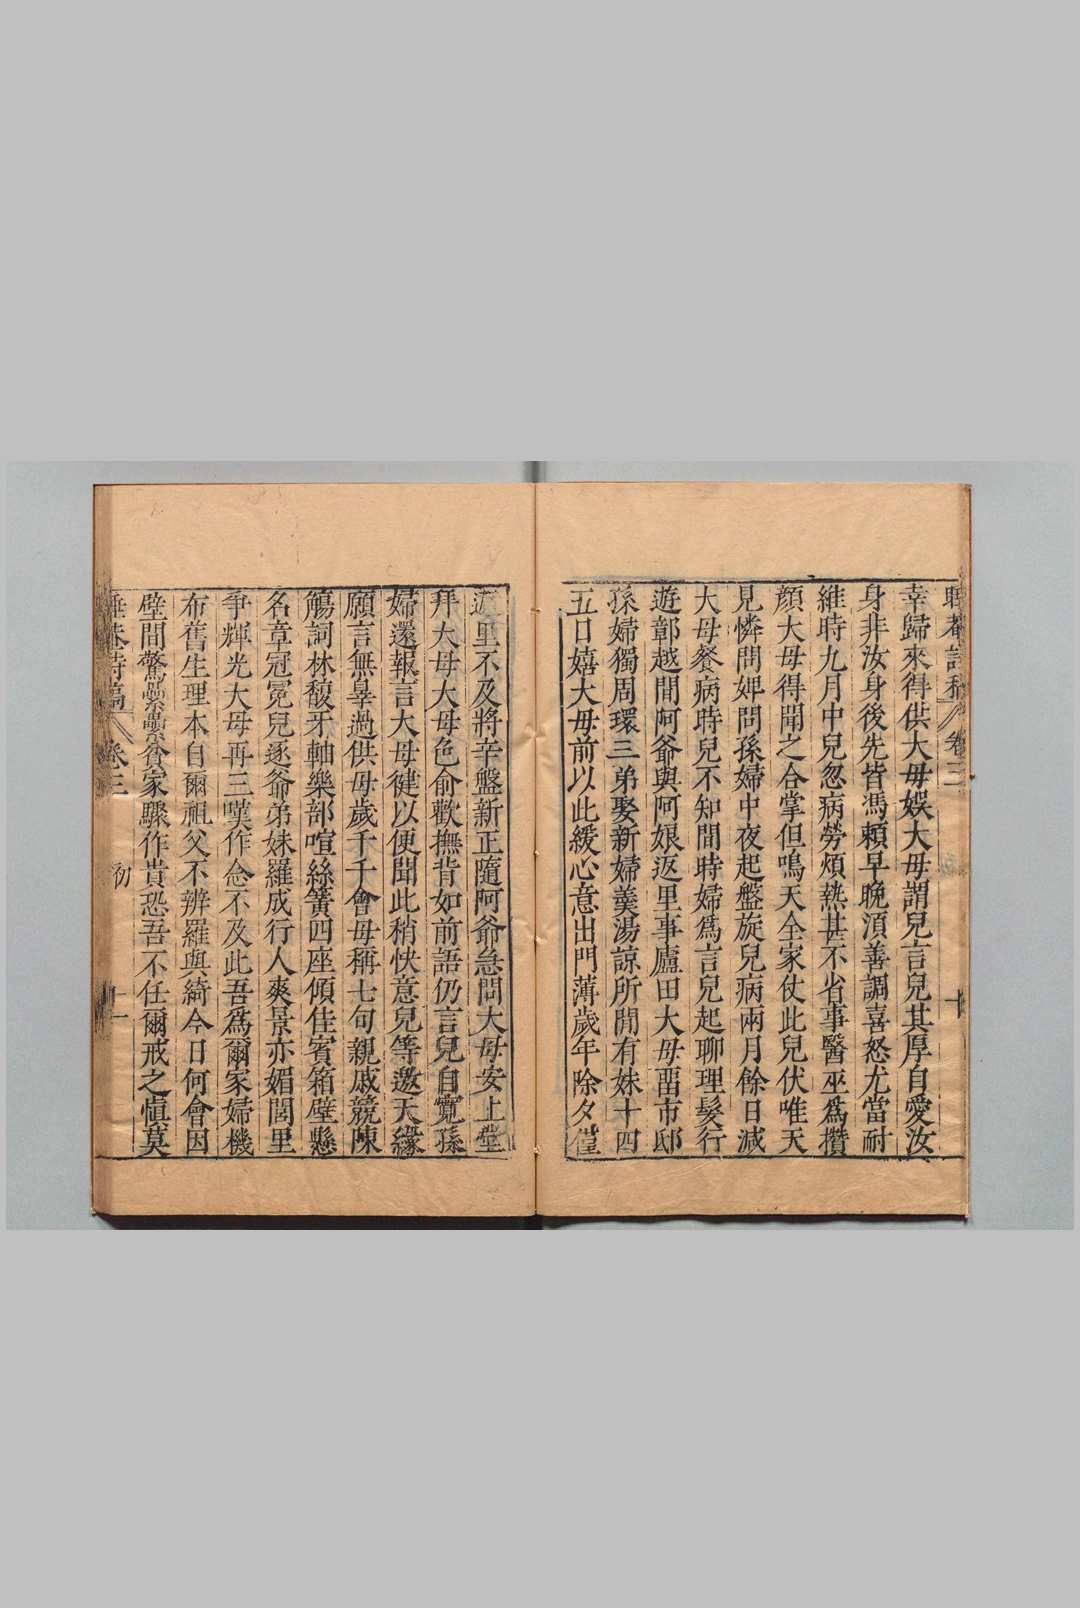 幸歸來得供大母娛大母謂兒言兒其厚自愛汝
身非汝身後先皆馮賴早晚湏善調喜怒尤當耐
維時九月中兒忽病勞煩熱甚不省事醫巫爲攢
顔大母得聞之合掌但鳴天全家仗此兒伏唯天
見憐問婢問孫婦中夜起盤旋兒病兩月餘日減
大母餐病時兒不知間時婦爲言兒起聊理髮行
遊鄣越間阿爺與阿娘返里事廬田大母畱市邸
孫婦獨周環三弟娶新婦羹湯諒所閒有妹十四
五日嬉大母前以此緩心意出門薄歲年除夕僅
還里不及將辛盤新正隨阿爺急問大母安上堂
拜大母大母色俞歡撫背如前語仍言兒自寬孫
婦還報言大母健以便聞此稍快意兒等邀天緣
願言無辠過供母歲千千會母稱七旬親戚競陳
觴詞林馥牙軸樂部喧絲簧四座傾佳賓箱壁懸
名章冠冕兒逐爺弟妹羅成行人爽景亦媚閭里
爭輝光大母再三嘆作念不及此吾爲爾家婦機
布舊生理本自爾祖父不辨羅與綺今日何會因
壁間驚纍纍貧家驟作貴恐吾不任爾戒之愼莫
卷三